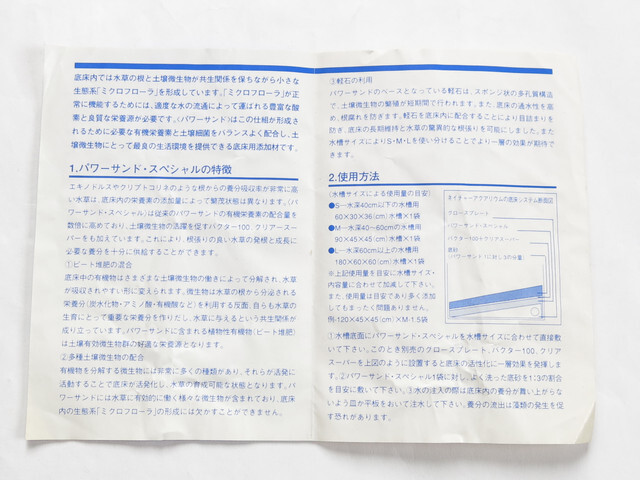 底床内では水草の根と土壌微生物が共生関係を保ちながら小さな
生態系「ミクロフローラ」を形成しています。「ミクロフローラ」が正
常に機能するためには、適度な水の流通によって運ばれる豊富な酸
素と良質な栄養源が必要です。〈パワーサンド〉はこの仕組が形成さ
れるために必要な有機栄養素と土壌細菌をバランスよく配合し、土
壌微生物にとって最良の生活環境を提供できる底床用添加材です。
1.パワーサンド・スペシャルの特徴
エキノドルスやクリプトコリネのような根からの養分吸収率が非常に高
い水草は、底床内の栄養素の添加量によって繁茂状態は異なります。〈パ
ワーサンド・スペシャル〉は従来のパワーサンドの有機栄養素の配合量を
数倍に高めており、土壌微生物の活躍を促すバクター100、クリアースー
パーをも加えています。これにより、根張りの良い水草の発根と成長に
必要な養分を十分に供給することができます。
①ピート堆肥の混合
底床中の有機物はさまざまな土壌微生物の働きによって分解され、水草
が吸収されやすい形に変えられます。微生物は水草の根から分泌される
栄養分(炭水化物・アミノ酸・有機酸など)を利用する反面、自らも水草の
生育にとって重要な栄養分を作りだし、水草に与えるという共生関係が
成り立っています。パワーサンドに含まれる植物性有機物(ピート堆肥)
は土壌有効微生物群の好適な栄養源となります。
②多種土壌微生物の配合
有機物を分解する微生物には非常に多くの種類があり、それらが活発に
活動することで底床が活発化し、水草の育成可能な状態となります。パワ
ーサンドには水草に有効的に働く様々な微生物が含まれており、底床
内の生態系「ミクロフローラ」の形成には欠かすことができません。
③軽石の利用
パワーサンドのベースとなっている軽石は、スポンジ状の多孔質構造
で、土壌微生物の繁殖が短期間で行われます。また、底床の通水性を高
め、根腐れを防ぎます。軽石を底床内に配合することにより目詰まりを
防ぎ、底床の長期維持と水草の驚異的な根張りを可能にしました。また
水槽サイズによりS・M・Lを使い分けることでより一層の効果が期待で
きます。
2.使用方法
〈水槽サイズによる使用量の目安〉
●S―水深40cm以下の水槽用
60×30×36(cm)水槽×1袋
●M―水深40〜60cmの水槽用
90×45×45(cm)水槽×1袋
●L―水深60cm以上の水槽用
180×60×60(cm)水槽×1袋
※上記使用量を目安に水槽サイズ・
内容量に合わせて加減して下さい。
また、使用量は目安であり多く添加
してもまったく問題ありません。
例-120×45×45(cm)×M-1.5袋
ネイチャーアクアリウムの底床システム断面図
グロースプレート
パワーサンド・スペシャル
バクター100+クリアースーパー
底砂
(パワーサンド/1に対し3の分量)
①水槽底面にパワーサンド・スペシャルを水槽サイズに合わせて直接敷
いて下さい。このとき別売のグロースプレート、バクター100、クリア
スーパーを上図のように設置すると底床の活性化に一層効果を発揮しま
す。②パワーサンド・スペシャル1袋に対し、よく洗った底砂を1:3の割合
を目安に敷いて下さい。③水の注入の際は底床内の養分が舞い上がらな
いよう皿か平板をおいて注水して下さい。養分の流出は藻類の発生を促
す恐れがあります。